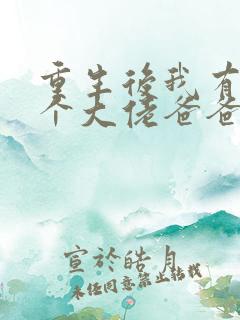 重生後我有
个大佬爸爸
宣於皓月
未经同意禁止转载